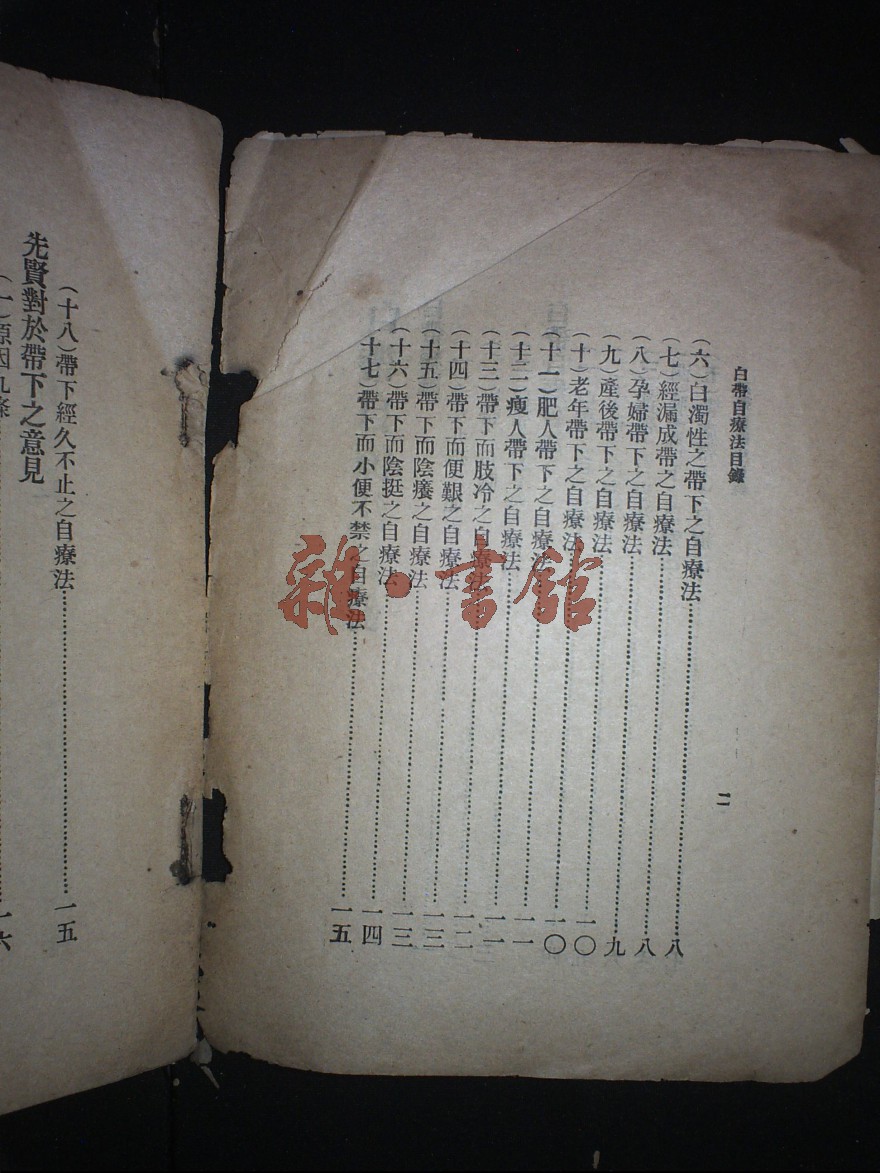 白帶自療法目錄
二
（六）白濁性之帶下之自療法…………八
（七）經漏成帶之自療法…………八
（八）孕婦帶下之自療法…………八
（九）產後帶下之自療法…………九
（十）老年帶下之自療法…………一〇
（十一）肥人帶下之自療法…………一〇
（十二）瘦人帶下之自療法…………一一
（十三）帶下而肢冷之自療法…………一一
（十四）帶下而便艱之自療法…………一二
（十五）帶下而陰癢之自療法…………一三
（十六）帶下而陰挺之自療法…………一三
（十七）帶下而小便不禁之自療法…………一四
一五
（十八）帶下經久不止之自療法…………一五
先賢對於帶下之意見
（一）原因九條…………一六
雜·書館